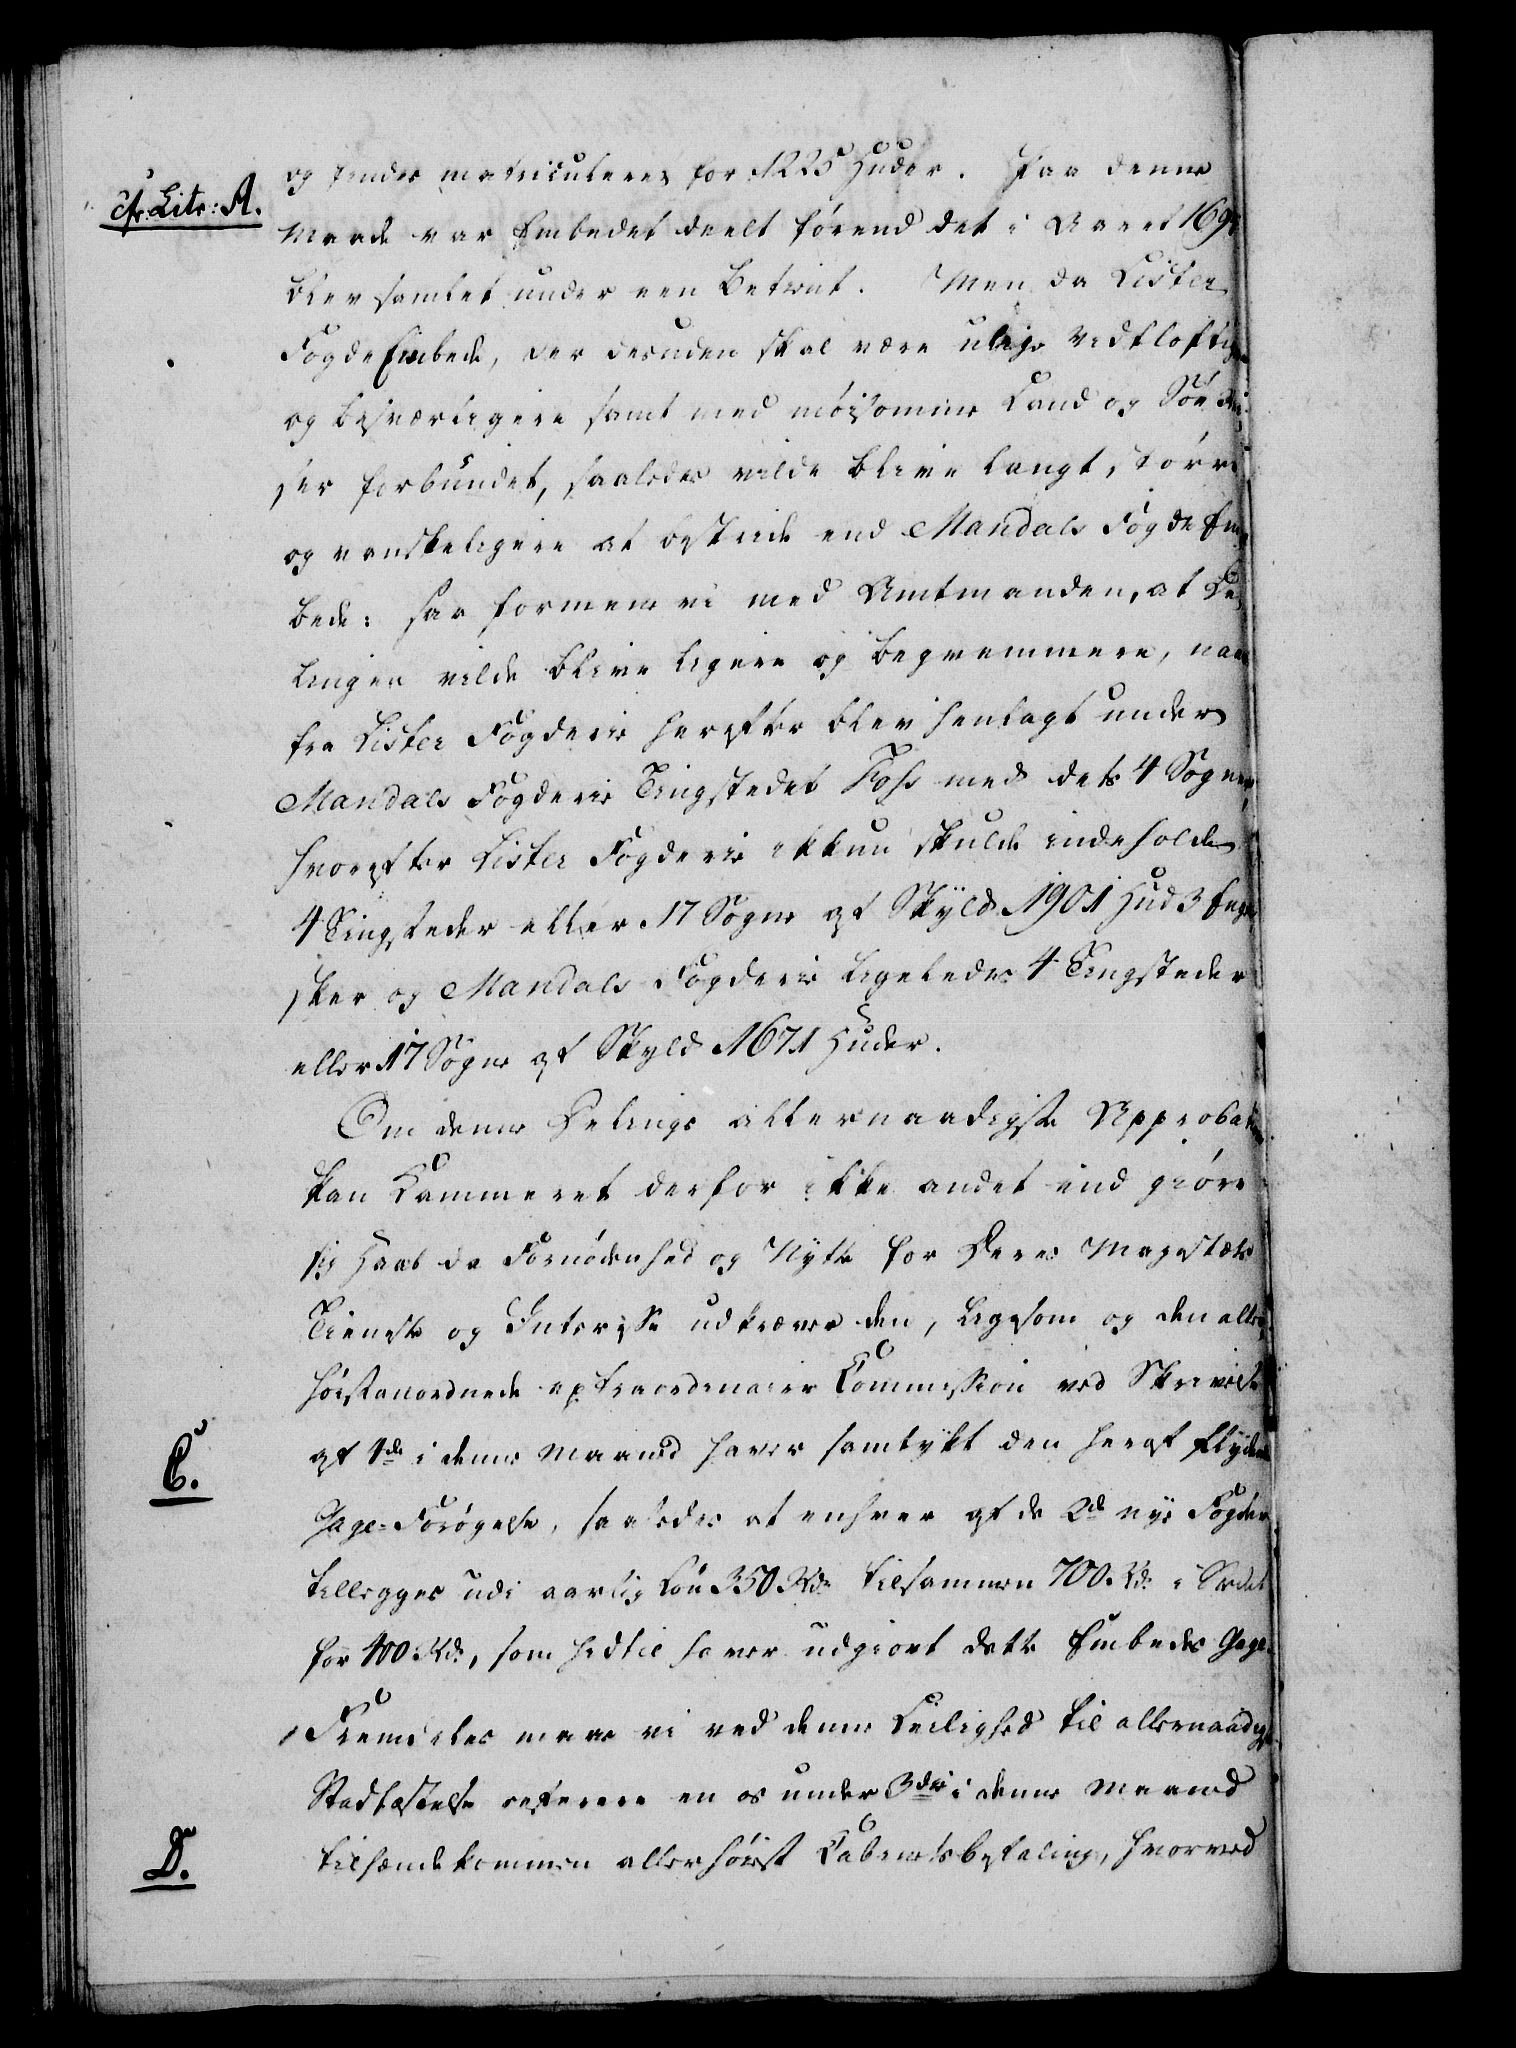 cfr: Litr: A.
og findes matriculeret for 1225 Huder. Paa denne
Maade var Embedet deelt førend det i Aaret 169
blev samlet under een Betient. Men da Lister
Fogde Embede, der desuden skal være ulige vidtløftige
og besværligere samt med møisomme Land og Søe Rei,
ser forbundet, saaledes vilde blive langt større
og vanskeligere at bestride end Mandals Fogde Em,
bede: saa formene vi med Amtmanden, at De,
lingen vilde blive ligere og beqvemmere, naar
fra Lister Fogderie herefter blev henlagt under
Mandals Fogderie Tingstedet Foss med dets 4 Sogner,
hvorefter Lister Fogderie ikkun skulde indeholde
4 Tingsteder eller 17 Sogne af Skyld 1901 Hud 3 Enge
sker og Mandals Fogderie ligeledes 4 Tingsteder
eller 17 Sogne af Skyld 1671 Huder.
Om denne Delings allernaadigste Approbation
kan Kammeret derfor ikke andet end giøre
sig Haab da Fornødenhed og Nytte for Deres Majestæts
Tieneste og Interesse udkræver den, ligesom og den aller,
høistanordnede extraordinaire Commission ved Skrivelse
C.
af 1de i denne Maaned haver samtykt den heraf flydende
Gage-Forøgelse, saaledes at enhver af de 2de nye Fogder
tillegges udi aarlig Løn 350 Rdr tilsammen 700 Rdr i Stedet
for 400 Rdr, som hidtil haver udgiort dette Embedes Gage.
Fremdeles maae vi ved denne Leilighed til allernaadigst
Stadfæstelse referere en os under 3die i denne Maaned
D.
tilhændekommen allerhøist Cabinetsbefaling, hvorved